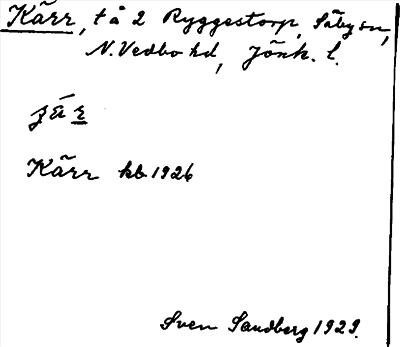 Kärr, t å 2 Ryggestorp, Säby sn,
N. Vedbo hd, Jönk. l.
Kärr kb 1926
Sven Sandberg 1929.